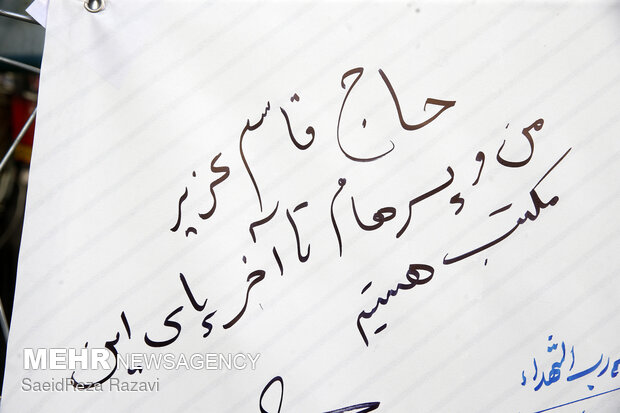 حاج قاسم عزیز
من و پسرهام تا آخر پای این
مکتب هستیم
رب الشهداء
MEHR NEWSAGENCY
SaeidReza Razavi